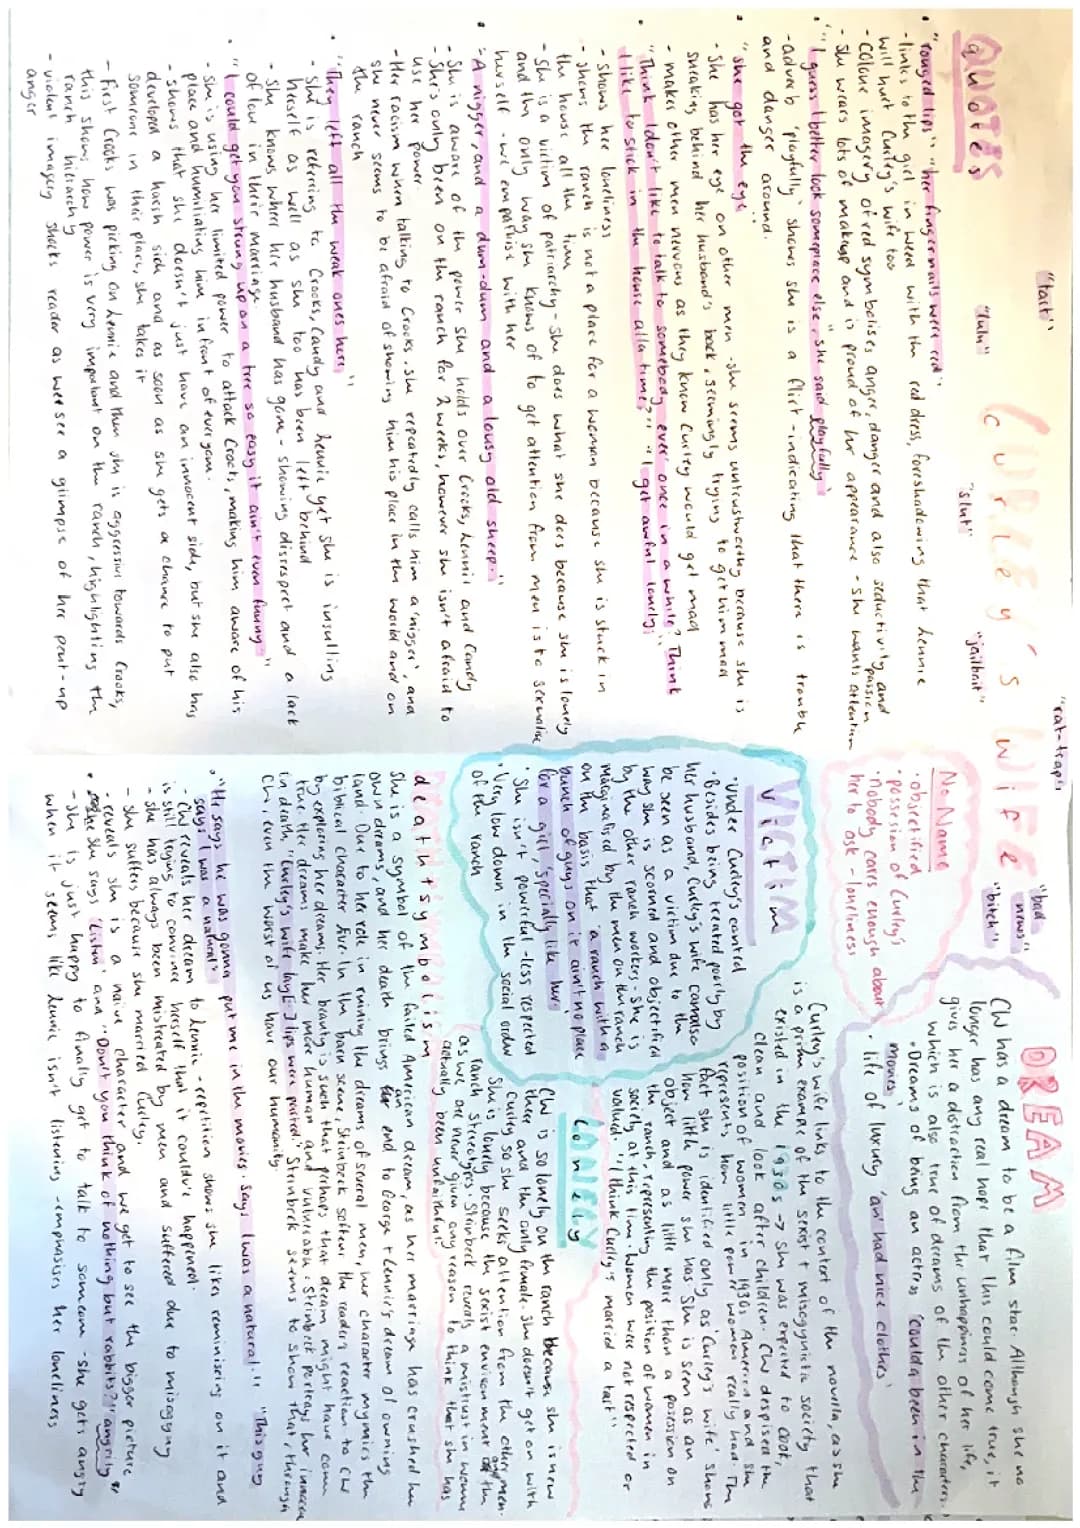 CURLEY'S WIFE
"tart"
"lulu"
"slut"
"jailbait"
"rat-trap"
"bad news"
"bitch"
QUOTES
quotes
• "rouged lips" "her fingernails were red"
- links to the girl in weed with the red dress, foreshadowing that lennie
will hurt Curley's wife too
- colour imagery of red symbolises anger, danger and also seductivity and passion
- she wears lots of makeup and is proud of her appearance - she wants attention
• "I guess I better look someplace else," she said playfully'
- adverb 'playfully' shows she is a flirt - indicating that there is trouble
and danger around.
• "she got the eye"
- she has her eye on other men - she seems untrustworthy because she is
sneaking behind her husband's back, seemingly trying to get him mad
- makes other men nervous as they know Curley would get mad
• "Think I don't like to talk to somebody ever' once in a while? Think
I like to stick in the house alla time?" "I get awful lonely"
- shows her loneliness
- shows the ranch is not a place for a woman because she is stuck in
the house all the time
- she is a victim of patriarchy - she does what she does because she is lonely
and the only way she knows of to get attention from men is to sexualise
herself - we empathise with her
• "A nigger, and a dum-dum and a lousy old sheep."
- She is aware of the power she holds over Crooks, lennie and Candy
- She's only been on the ranch for 2 weeks, however she isn't afraid to
use her power.
- Her racism when talking to Crooks. she repeatedly calls him a 'nigger', and
she never seems to be afraid of showing him his place in the world and on
the ranch
• "They left all the weak ones here"
- she is referring to Crooks, Candy and lennie yet she is insulting
herself as well as she too has been left behind
- she knows where her husband has gone - showing disrespect and a lack
of love in their marriage
• "I could get you strung up on a tree so easy it ain't even funny"
- she is using her limited power to attack Crooks, making him aware of his
place and humiliating him in front of everyone.
- shows that she doesn't just have an innocent side, but she also has
developed a harsh side and as soon as she gets a chance to put
someone in their place, she takes it
- first Crooks was picking on lennie and then she is aggressive towards Crooks,
this shows how power is very important on the ranch, highlighting the
ranch hierarchy
- violent imagery shocks reader as we see a glimpse of her pent-up
anger
DREAM
CW has a dream to be a film star. Although she no
longer has any real hope that this could come true, it
gives her a distraction from the unhappiness of her life,
which is also true of dreams of the other characters.
• Dreams of being an actress 'coulda been in the
movies'
• life of luxury 'an' had nice clothes'
No Name
• objectified
• possesion of Curley's
• Nobody cares enough about
her to ask - loneliness
Curley's wife links to the context of the novella, as she
is a prime example of the sexist + misogynistic society that
existed in the 1930s → she was expected to cook,
clean and look after children. CW despised the
position of women in 1930s America and she
represents how little power women really had. The
fact she is identified only as 'Curley's wife' shows
how little power she has. She is seen as an
object and as little more than a possesion on
the ranch, representing the position of women in
society at this time. Women were not respected or
valued. "I think Curley's married a tart"
VICTIM
victim
• Under Curley's control
• Besides being treated poorly by
her husband, Curley's wife can also
be seen as a victim due to the
way she is scorned and objectified
by the other ranch workers. She is
marginalised by the men on the ranch
on the basis that 'a ranch with a
bunch of guys on it ain't no place
for a girl, specially like her'.
• She isn't powerful - less respected
• Very low down in the social order
of the ranch
LONELY
lonely
CW is so lonely on the ranch because she is new
there and the only female. She doesn't get on with
Curley so she seeks attention from the other men.
She is lonely because the sexist enviroment and the
ranch stereotypes. Steinbeck reveals a mistrust in women
as we are never given any reason to think that she has
actually been unfaithful.
death symbolism
She is a symbol of the failed American dream, as her marriage has crushed her
own dreams, and her death brings an end to George + Lennie's dream of owning
land. Due to her role in ruining the dreams of several men, her character mymics the
biblical character Eve. In the barn scene, Steinbeck softens the readers reaction to CW
by exploring her dreams. Her beauty is such that perhaps that dream might have come
true. Her dreams make her more human and vulnerable. Steinbeck portrays her innocence
in death, "Curley's wife lay[...] lips were parted." Steinbeck seems to show that, through
CW, even the worst of us have our humanity.
• "He says he was gonna put me in the movies. Says I was a natural." "This guy
says I was a natural"
- CW reveals her dream to lennie - repetition shows she likes reminising on it and
is still trying to convince herself that it could've happened.
- she has always been mistreated by men and suffered due to misogyny
- she suffers because she married Curley.
- reveals she is a naive character and we get to see the bigger picture
• she says 'Listen' and "Don't you think of nothing but rabbits?" angrily
- she is just happy to finally get to talk to someone - she gets angry
when it seems like lennie isn't listening - emphasises her loneliness